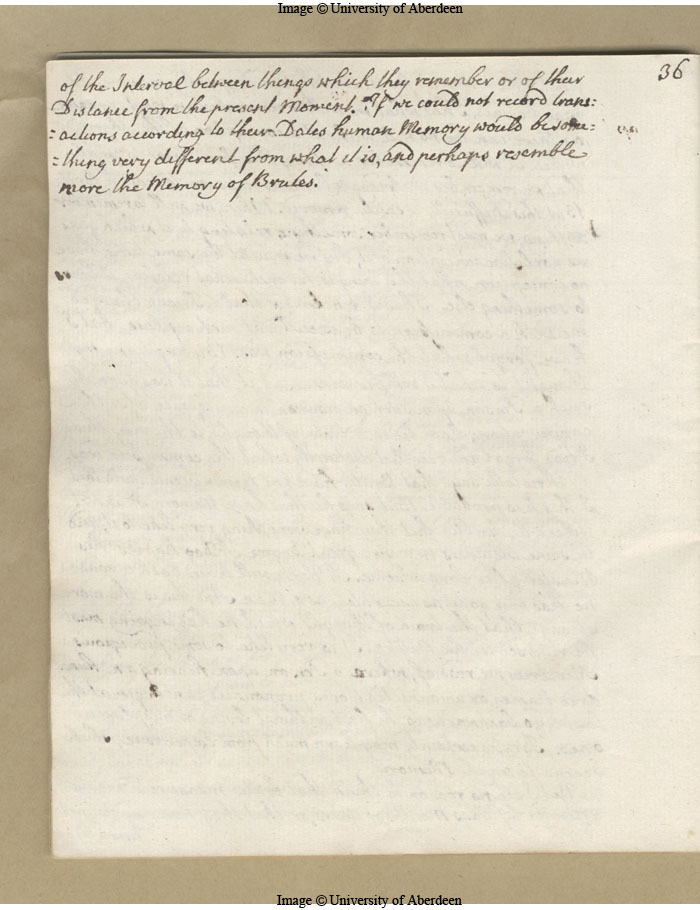 Image © University of Aberdeen
36
of the Interval between things which they remember or of their
Distance from the present Moment. If we could not record trans:
:actions according to their Dates human Memory would be some:
:thing very different from what it is, and perhaps resemble
more the Memory of Brutes.
Image © University of Aberdeen